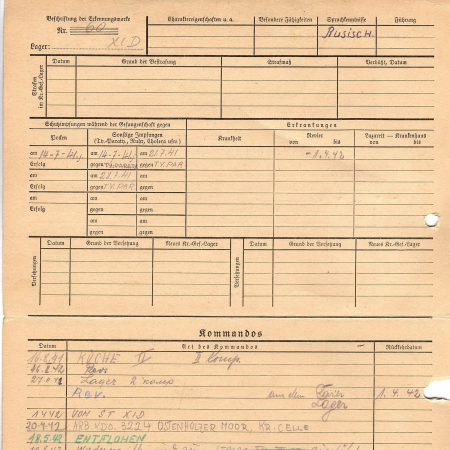 Beschriftung der Erkennungsmarke
Nr. 60
Lager: XID
Charaktereigenschaften u.a.
Besondere Fähigkeiten
Sprachkenntnisse
Führung
Rusisch.
Strafen im Kr.-Gef.-Lager
Datum
Grund der Bestrafung
Strafmaß
Verbüßt, Datum
Schutzimpfungen während der Gefangenschaft gegen
Erkrankungen
Pocken
Sonstige Impfungen
(Ty.-Paraty., Ruhr, Cholera usw.)
Krankheit
Revier
von bis
Lazarett — Krankenhaus
von bis
am 14-7-41. am 14.7.41 am 21.7.41
Erfolg gegen TY.PARA gegen TY.PAR
am am 28.7.41 am
Erfolg gegen TY.PAR gegen
am am am
Erfolg gegen gegen
am am
gegen gegen
Versetzungen
Datum
Grund der Versetzung
Neues Kr.-Gef.-Lager
Versetzungen
Datum
Grund der Versetzung
Neues Kr.-Gef.-Lager
-1.4.42
Kommandos
Datum
Art des Kommandos
Rückkehrdatum
KÜCHE IV II Komp.
Lager 2 Komp
Rev. aus dem Lager 1.4.42
1442 VON ST XID
20-4-42 ARB. KDO. 3224 OSTENHOLZER MOOR. KR. CELLE
18.5.42 ENTFLOHEN